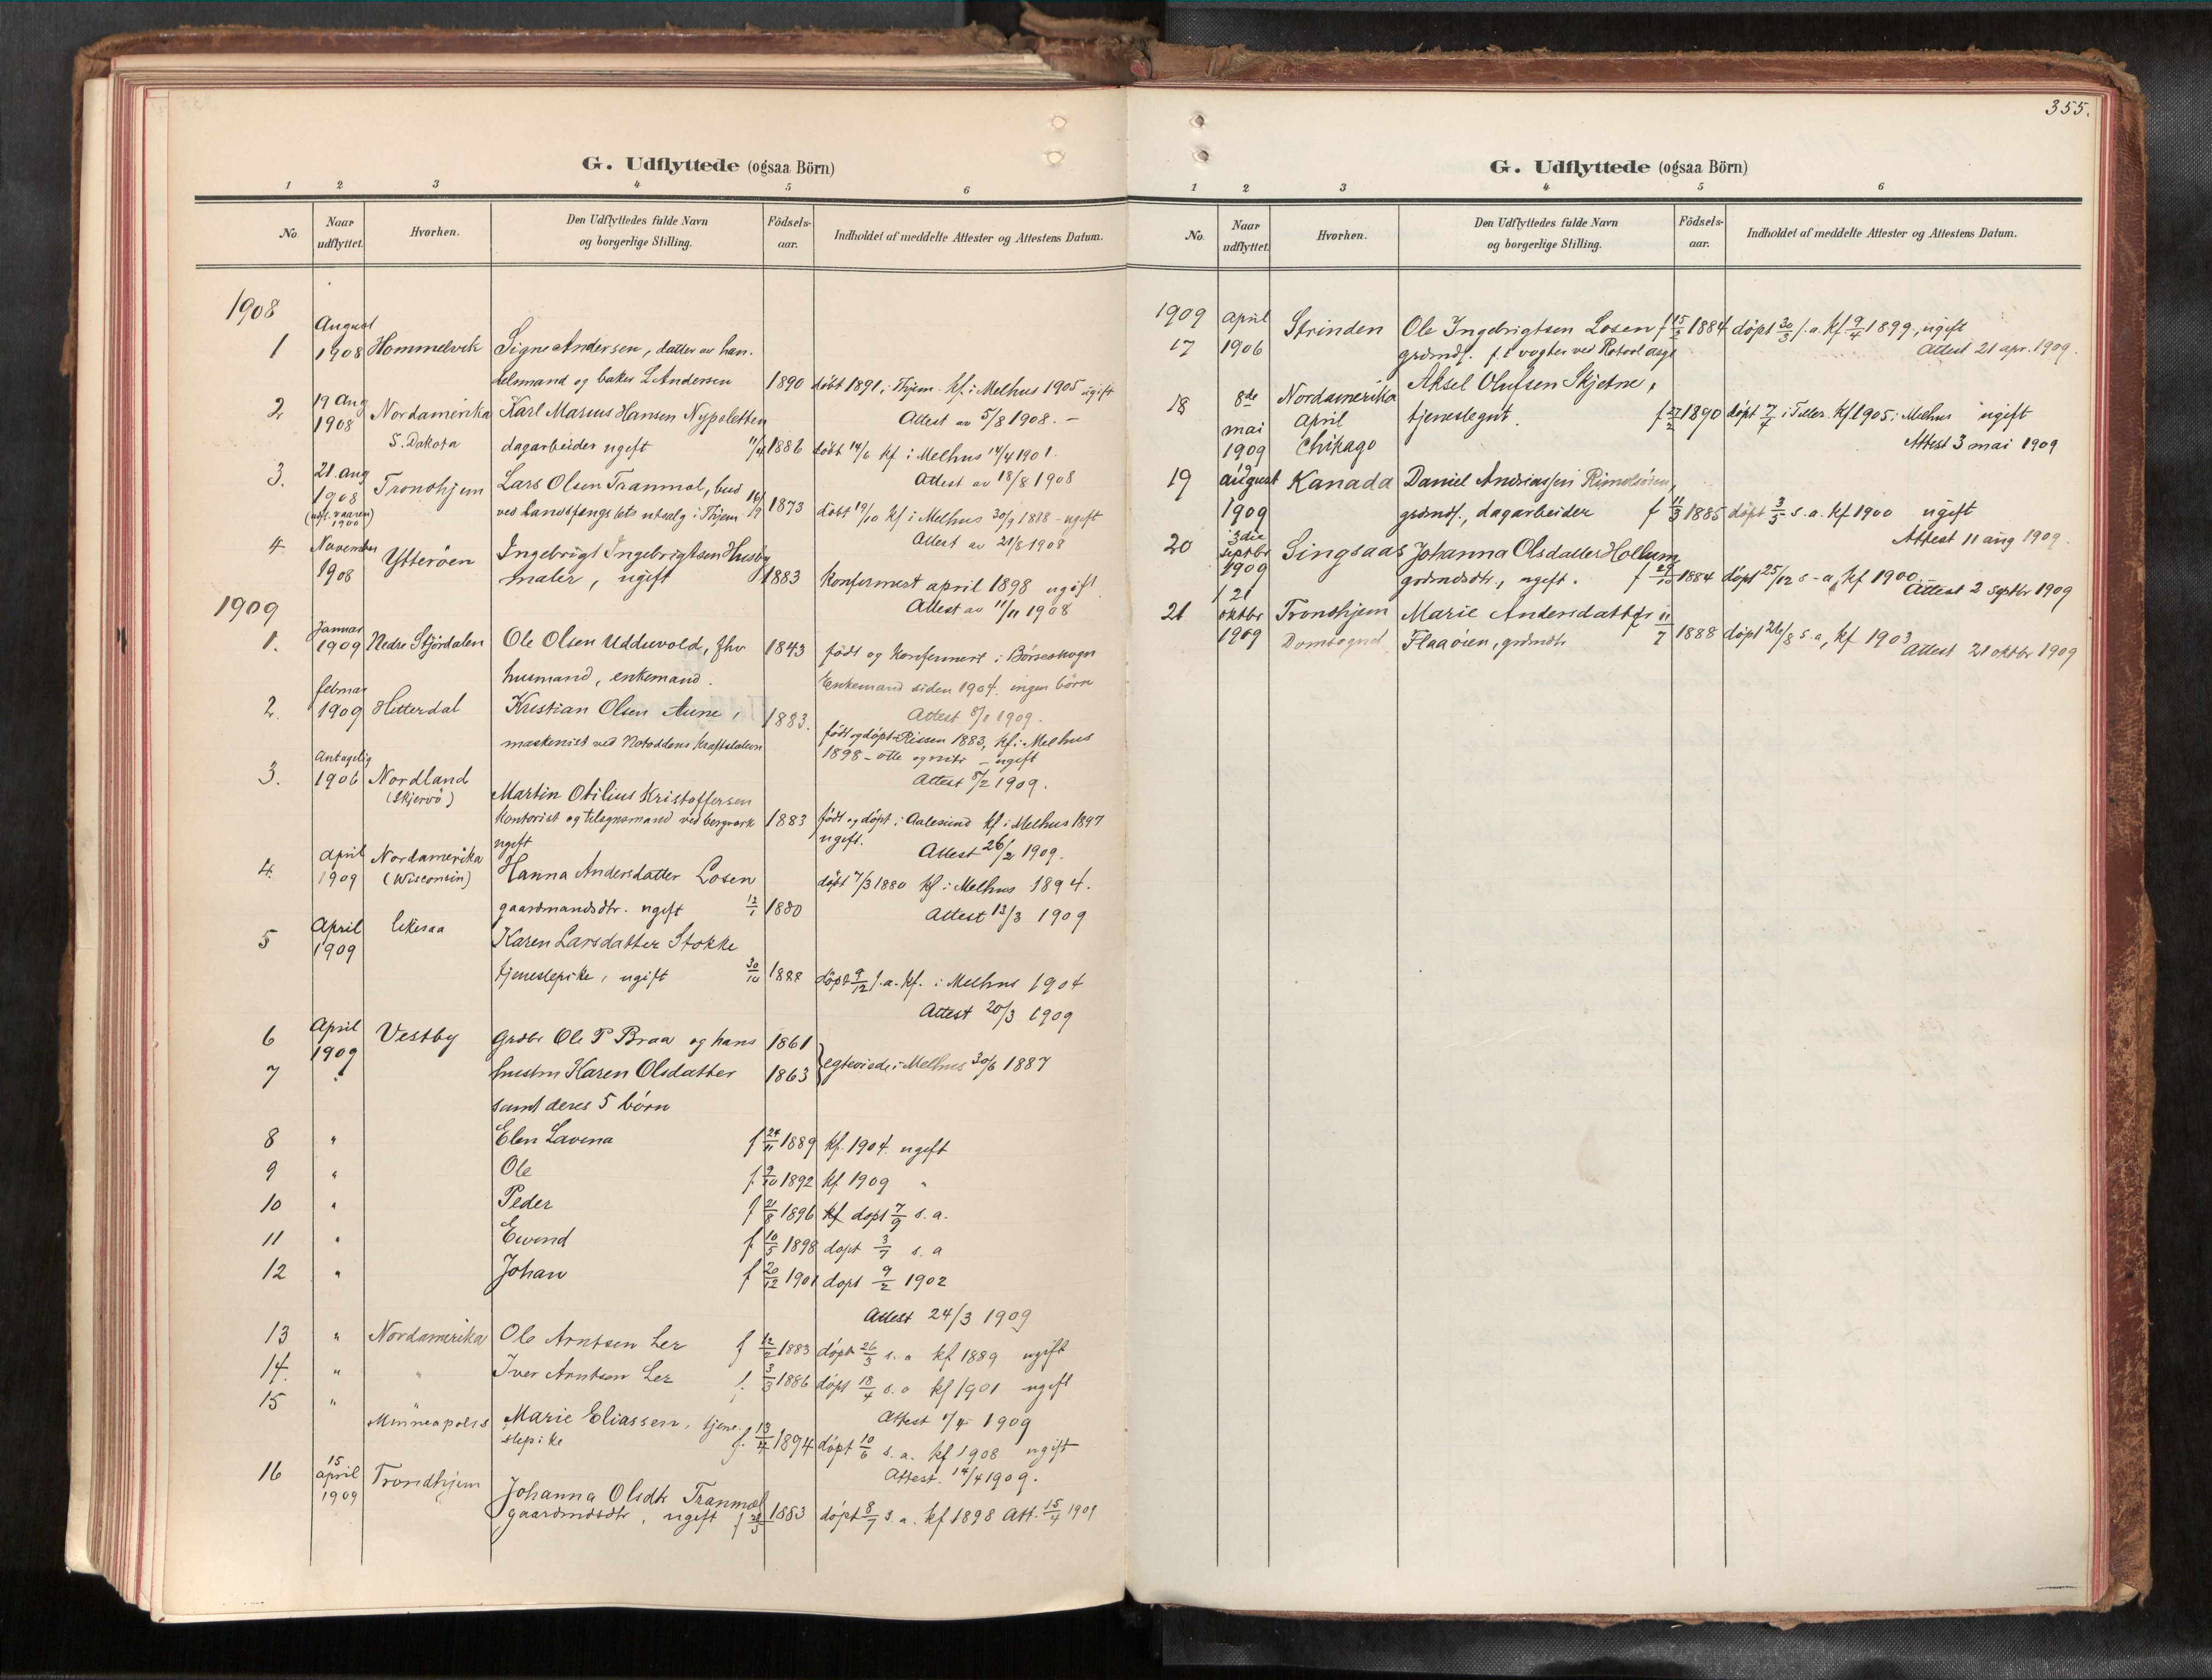 G. Udflyttede (ogsaa Börn)
1 2 3 4 5 6
No. Naar udflyttet. Hvorhen. Den Udflyttedes fulde Navn og borgerlige Stilling. Födsels-aar. Indholdet af meddelte Attester og Attestens Datum.
1908
1 August 1908 Hommelvik Signe Andersen, datter av han.
delsmand og baker L Andersen 1890 döbt 1891 i Thjem. kf. i Melhus 1905 ugift
Attest av 5/8 1908. –
2 19 Aug 1908 Nordamerika Karl Marius Hansen Nypsletten
S. Dakota dagarbeider ugift 1886 döbt 14/6 kf i Melhus 14/4 1901.
Attest av 18/8 1908
3. 21. aug 1908 Trondhjem Lars Olsen Tranmæl, bud
(utfl. vaaren 1900) ved Landsfængslets utsalg i Thjem 1873 döbt 19/10 kf i Melhus 30/9 1888 – ugift
Attest av 21/8 1908
4. November 1908 Ytteröen Ingebrigt Ingebrigtsen Husby
maler, ugift 1883 Konfermert april 1898 ugift
Attest av 11/11 1908
1909
1. Januar 1909 Nedre Stjördalen Ole Olsen Udduvold, fhv 1843 födt og Konfermert i Börseskogn
husmand, enkemand. Enkemand siden 1904. ingen börn
Attest 8/1 1909.
2. februar 1909 Hitterdal Kristian Olsen Aune, 1883. födt og döpt i Rissen 1883, kf. i Melhus
maskenist ved Notoddens Kraftstation 1898 – – ugift
Attest 8/2 1909.
3. Antagelig 1906 Nordland (Skjervö) Martin Otilius Kristoffersen
kontorist og tilsynsmand ved bergverk 1883 födt og döpt i Aalesund kf i Melhus 1897
ugift ugift.
Attest 26/2 1909.
4. April 1909 Nordamerika (Wisconsin) Hanna Andersdatter Losen döpt 7/3 1880 kf i Melhus 1894.
gaardmandsdtr. ugift 12/1 1880
Attest 13/3 1909
5 April 1909 Karen Larsdatter Stokke
tjenestepike, ugift 30/10 1888 döpt 9/12 s.a. kf. i Melhus 1904
Attest 20/3 1909
6 April 1909 Vestby Grdbr Ole P Braa og hans 1861
7 " hustru Karen Olsdatter 1863 } egteviede i Melhus 30/6 1887
samt deres 5 börn
8 " Elen Lavina f 24/11 1889 kf. 1904 ugift
9 " Ole f. 9/10 1892 kf 1909 "
10 " Peder f 21/8 1896 kf döpt 7/9 s. a.
11 " Eivind f. 10/5 1898 döpt 3/7 s. a
12 " Johan f 20/12 1901 döpt 9/2 1902
Attest 24/3 1909
13 " Nordamerika Ole Arntsen Ler f 12/2 1883 döpt 26/3 s. a kf 1889 ugift
14. " " Iver Arntsen Ler f. 3/3 1886 döpt 18/4 s. a kf 1901 ugift
Attest 1/4 1909
15 " " Minneapolis Marie Eliassen, tjene-
stepike f. 13/4 1874 döpt 10/6 s. a. kf 1908 ugift
Attest. 14/4 1909.
16 15 april 1909 Trondhjem Johanna Olsdtr Tranmæl
gaardmdsdtr, ugift 1883 döpt 8/7 s. a. kf 1898 Att. 15/4 1909
355.
G. Udflyttede (ogsaa Börn)
1 2 3 4 5 6
No. Naar udflyttet. Hvorhen. Den Udflyttedes fulde Navn og borgerlige Stilling. Födsels-aar. Indholdet af meddelte Attester og Attestens Datum.
1909
17 april 1906 Strinden Ole Ingebrigtsen Losen f 15/2 1884 döpt 30/3 s. a. kf. 9/4 1899, ugift
grdmds. f. t. vogter ved Rotvol asyl Attest 21 apr. 1909.
18 8de mai 1909 Nordamerika April Chikago Aksel Olufsen Skjetne,
tjenestegut. f 27/2 1890 döpt 7/7 i Tiller. Kf 1905 i Melhus ugift
Attest 3 mai 1909
19 august 1909 Kanada Daniel Andreassen Rimolsören,
grdmds., dagarbeider f 11/3 1885 döpt 3/5 s. a. kf 1900 ugift
Attest 11 aug 1909.
20 3die septbr 1909 Singsaas Johanna Olsdatter Hollum
grdmdsdtr., ugift. f 29/10 1884 döpt 25/12 s – a, kf 1900
Attest 2 septbr 1909
21 21 oktbr 1909 Trondhjem Domsogned Marie Andersdatter
Flaaöien, grdmdtr f 11/7 1888 döpt 26/8 s. a, kf 1903
Attest 21 oktbr 1909